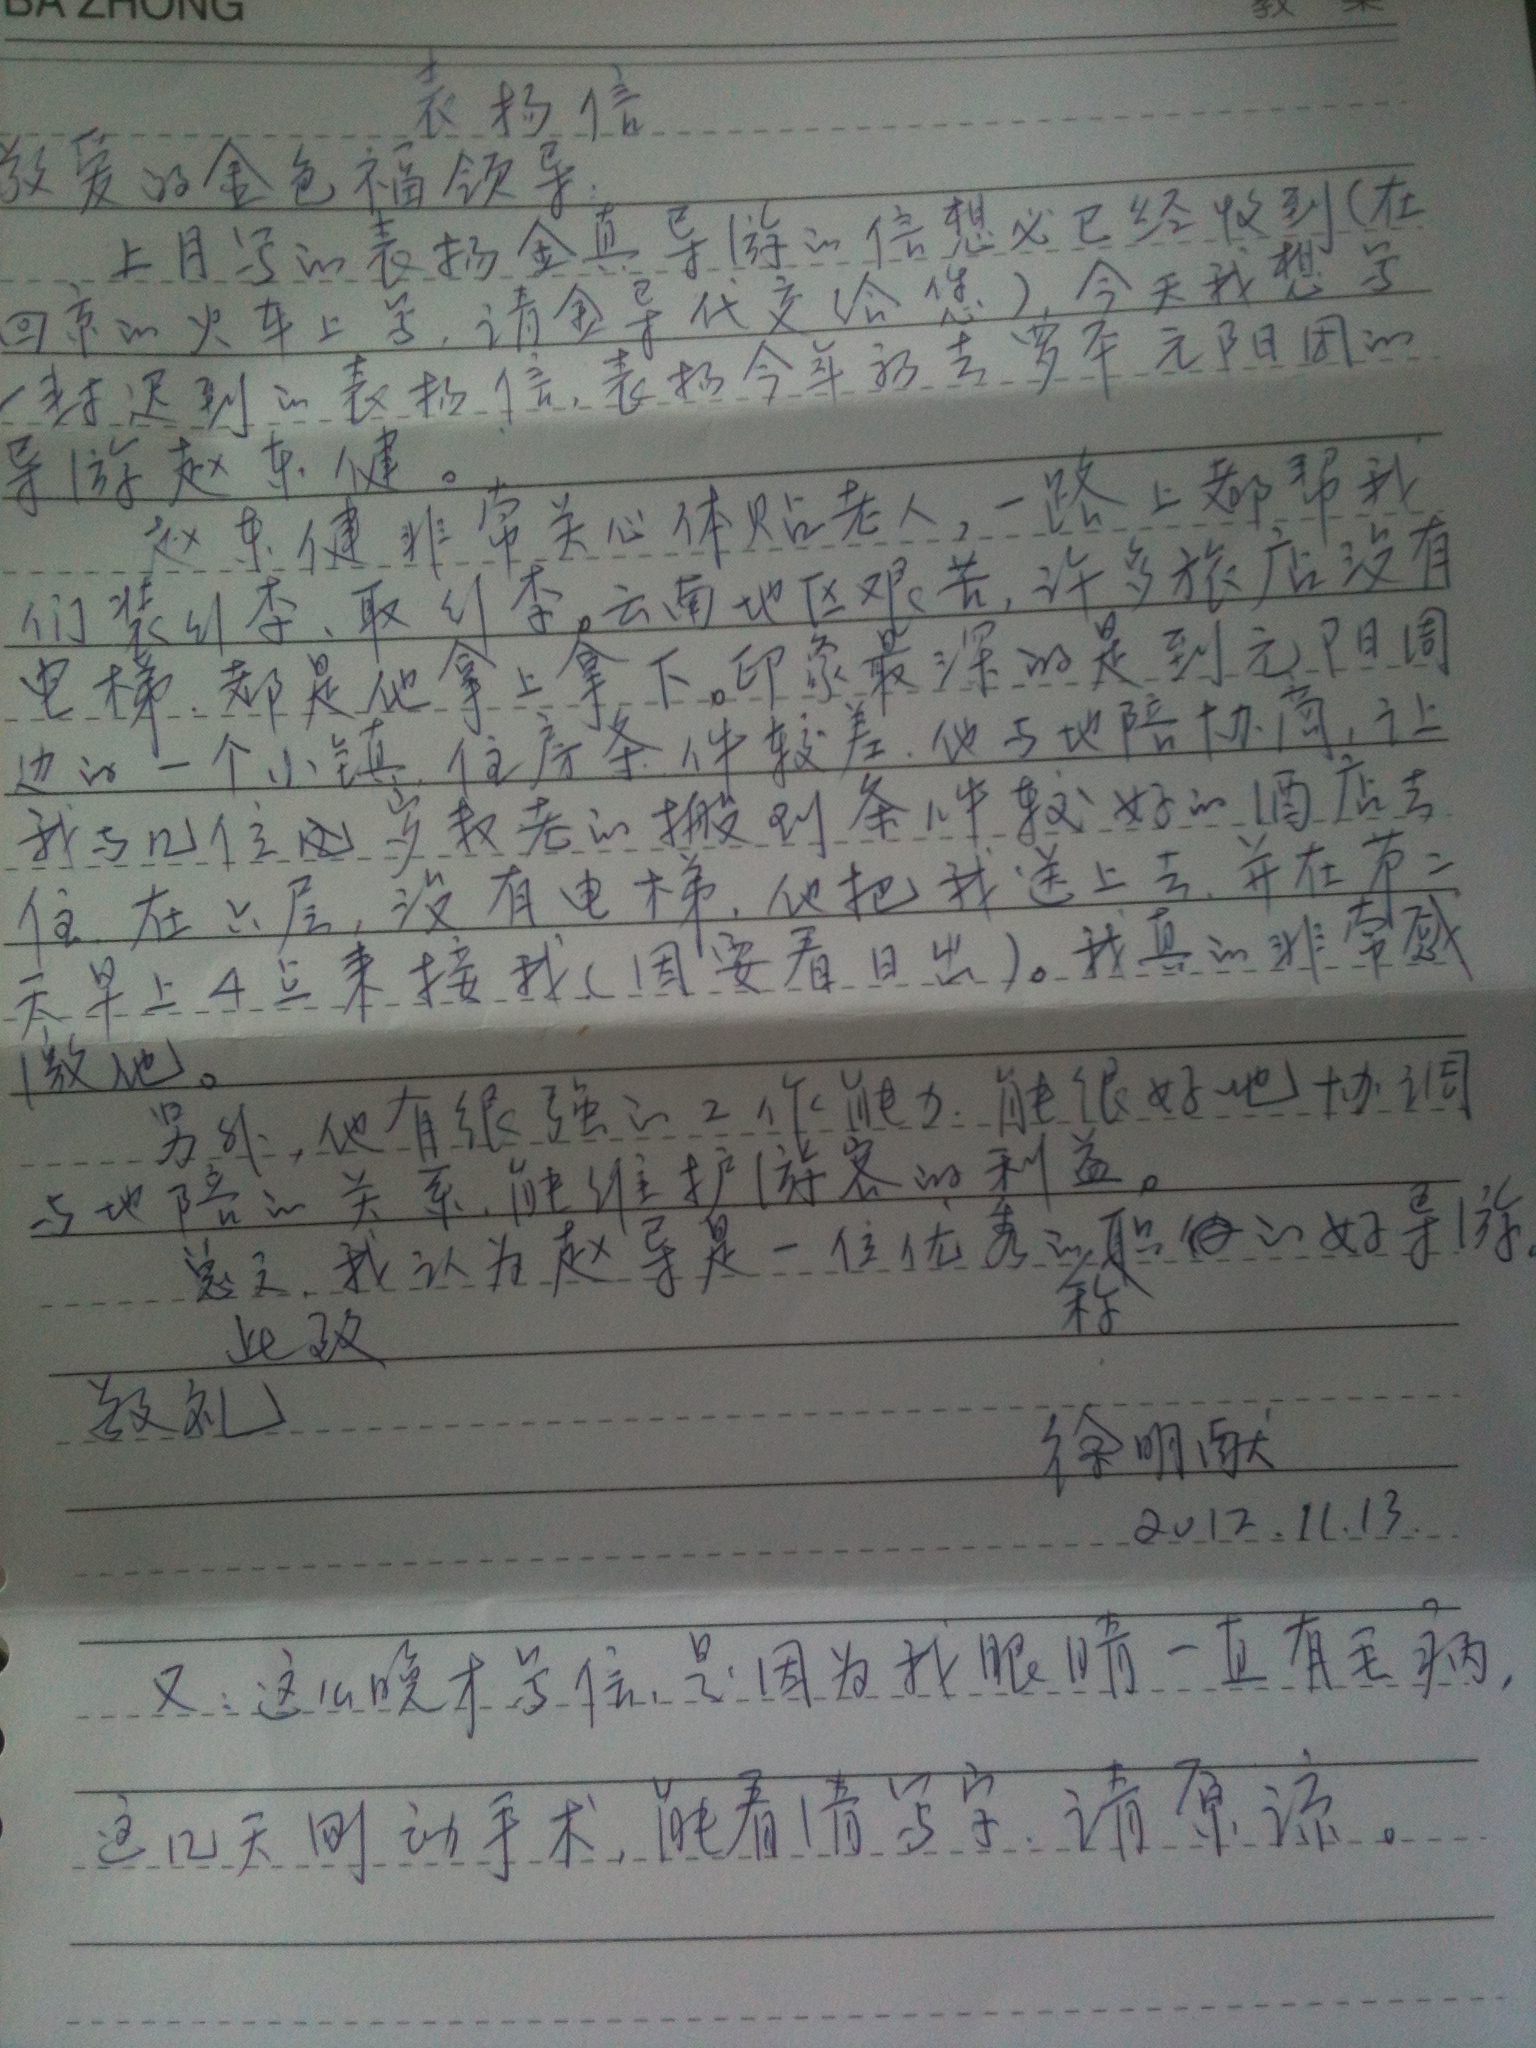 BA ZHONG
教 案
表扬信
敬爱的金色福领导:
上月写的表扬金真导游的信想必已经收到(在
回京的火车上写,请金导代交给您),今天我想写
一封迟到的表扬信,表扬今年初去罗平元阳团的
导游赵东健。
赵东健非常关心体贴老人,一路上都帮我
们装行李、取行李。云南地区艰苦,许多旅店没有
电梯,都是他拿上拿下。印象最深的是到元阳周
边的一个小镇,住房条件较差,他与地陪协商,让
我与几位岁数老的搬到条件较好的酒店去
住,在六层,没有电梯,他把我送上去,并在第二
天早上4点来接我(因要看日出)。我真的非常感
激他。
另外,他有很强的工作能力,能很好地协调
与地陪的关系,能维护游客的利益。
总之,我认为赵导是一位优秀的职称的好导游。
此致
敬礼
徐明献
2012.11.13.
又:这么晚才写信,是因为我眼睛一直有毛病,
这几天刚动手术,能看清写字,请原谅。